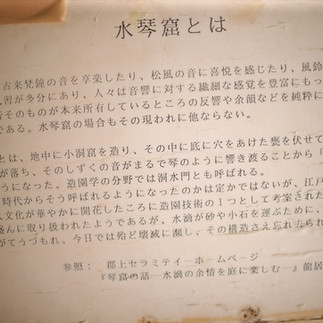 水琴窟とは
古来梵鐘の音を享楽したり、松風の音に喜悦を感じたり、風鈴
習が多分にあり、人々は音響に対する繊細な感覚を豊富にもっ
そのものが本来所有しているところの反響や余韻などを純粋に
である。水琴窟の場合もその現われに他ならない。
とは、地中に小洞窟を造り、その中に底に穴をあけた甕を伏せて
が落ち、そのしずくの音がまるで琴のように響き渡ることから「
うになった。造園学の分野では洞水門とも呼ばれる。
時代からそう呼ばれるようになったのは定かではないが、江戸
人文化が華やかに開花したころに造園技術の1つとして考案された
んに取り扱われたようであるが、水滴が砂や小石を運ぶために、
がてうづもれ、今日では殆ど壊滅に瀕し、その構造さえ忘れ去られ
参照: 郡上セラミティーホームページ
『琴窟の話―水滴の余情を庭に楽しむ―』龍居